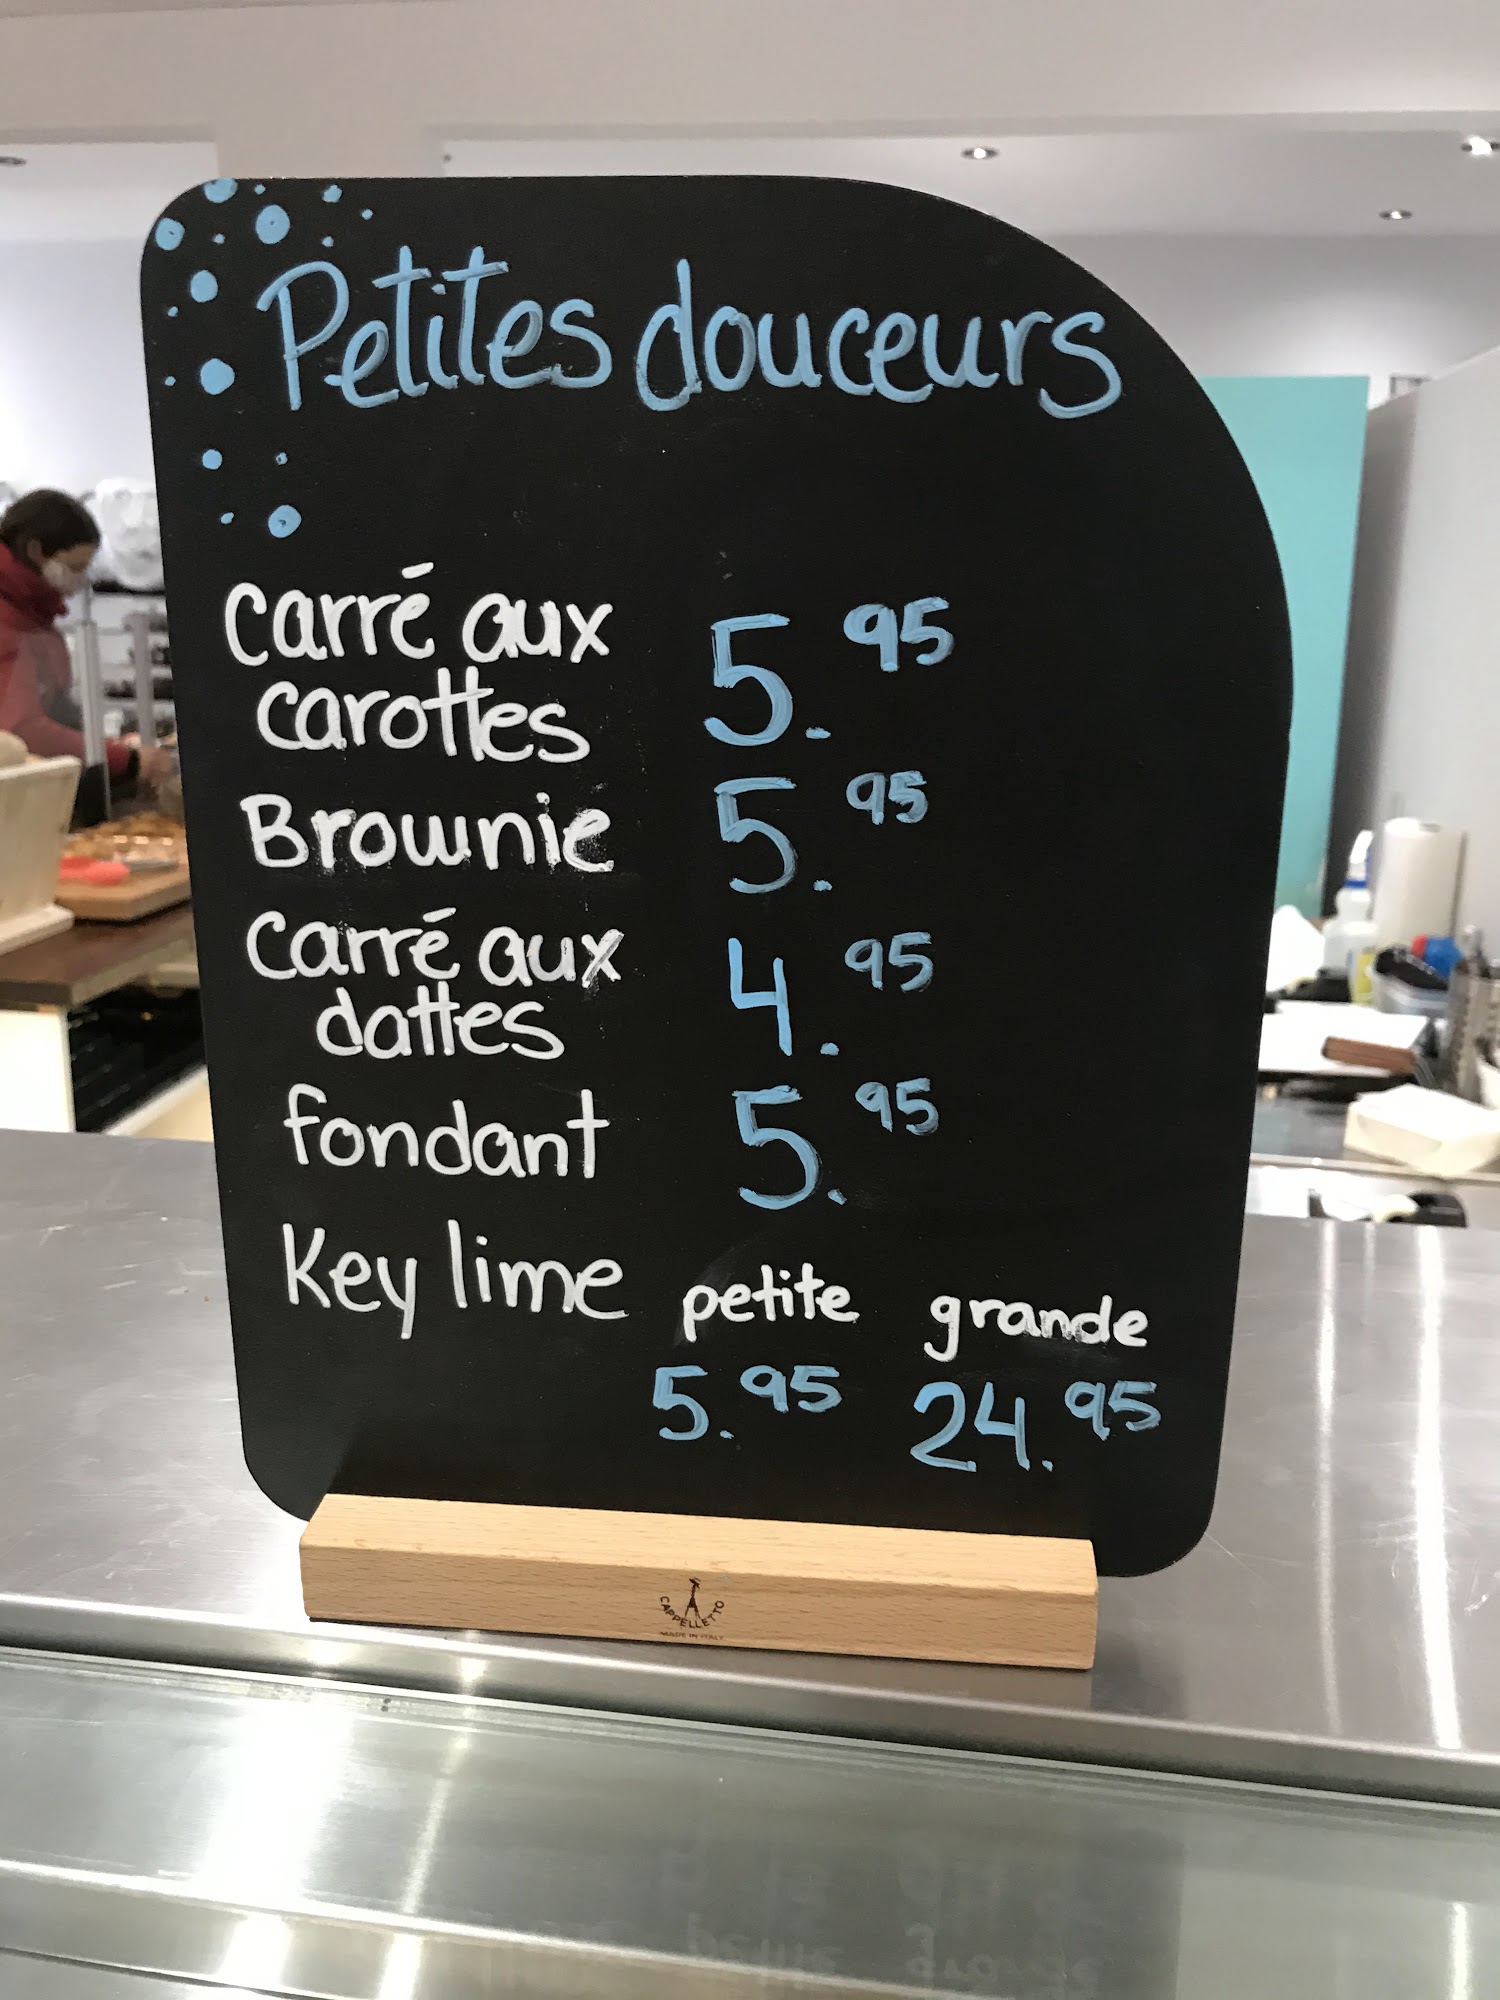 Petites douceurs
Carré aux
carottes 5.95
Brownie 5.95
Carré aux
dattes 4.95
fondant 5.95
Key lime petite grande
5.95 24.95
CAPPELLETTO
MADE IN ITALY